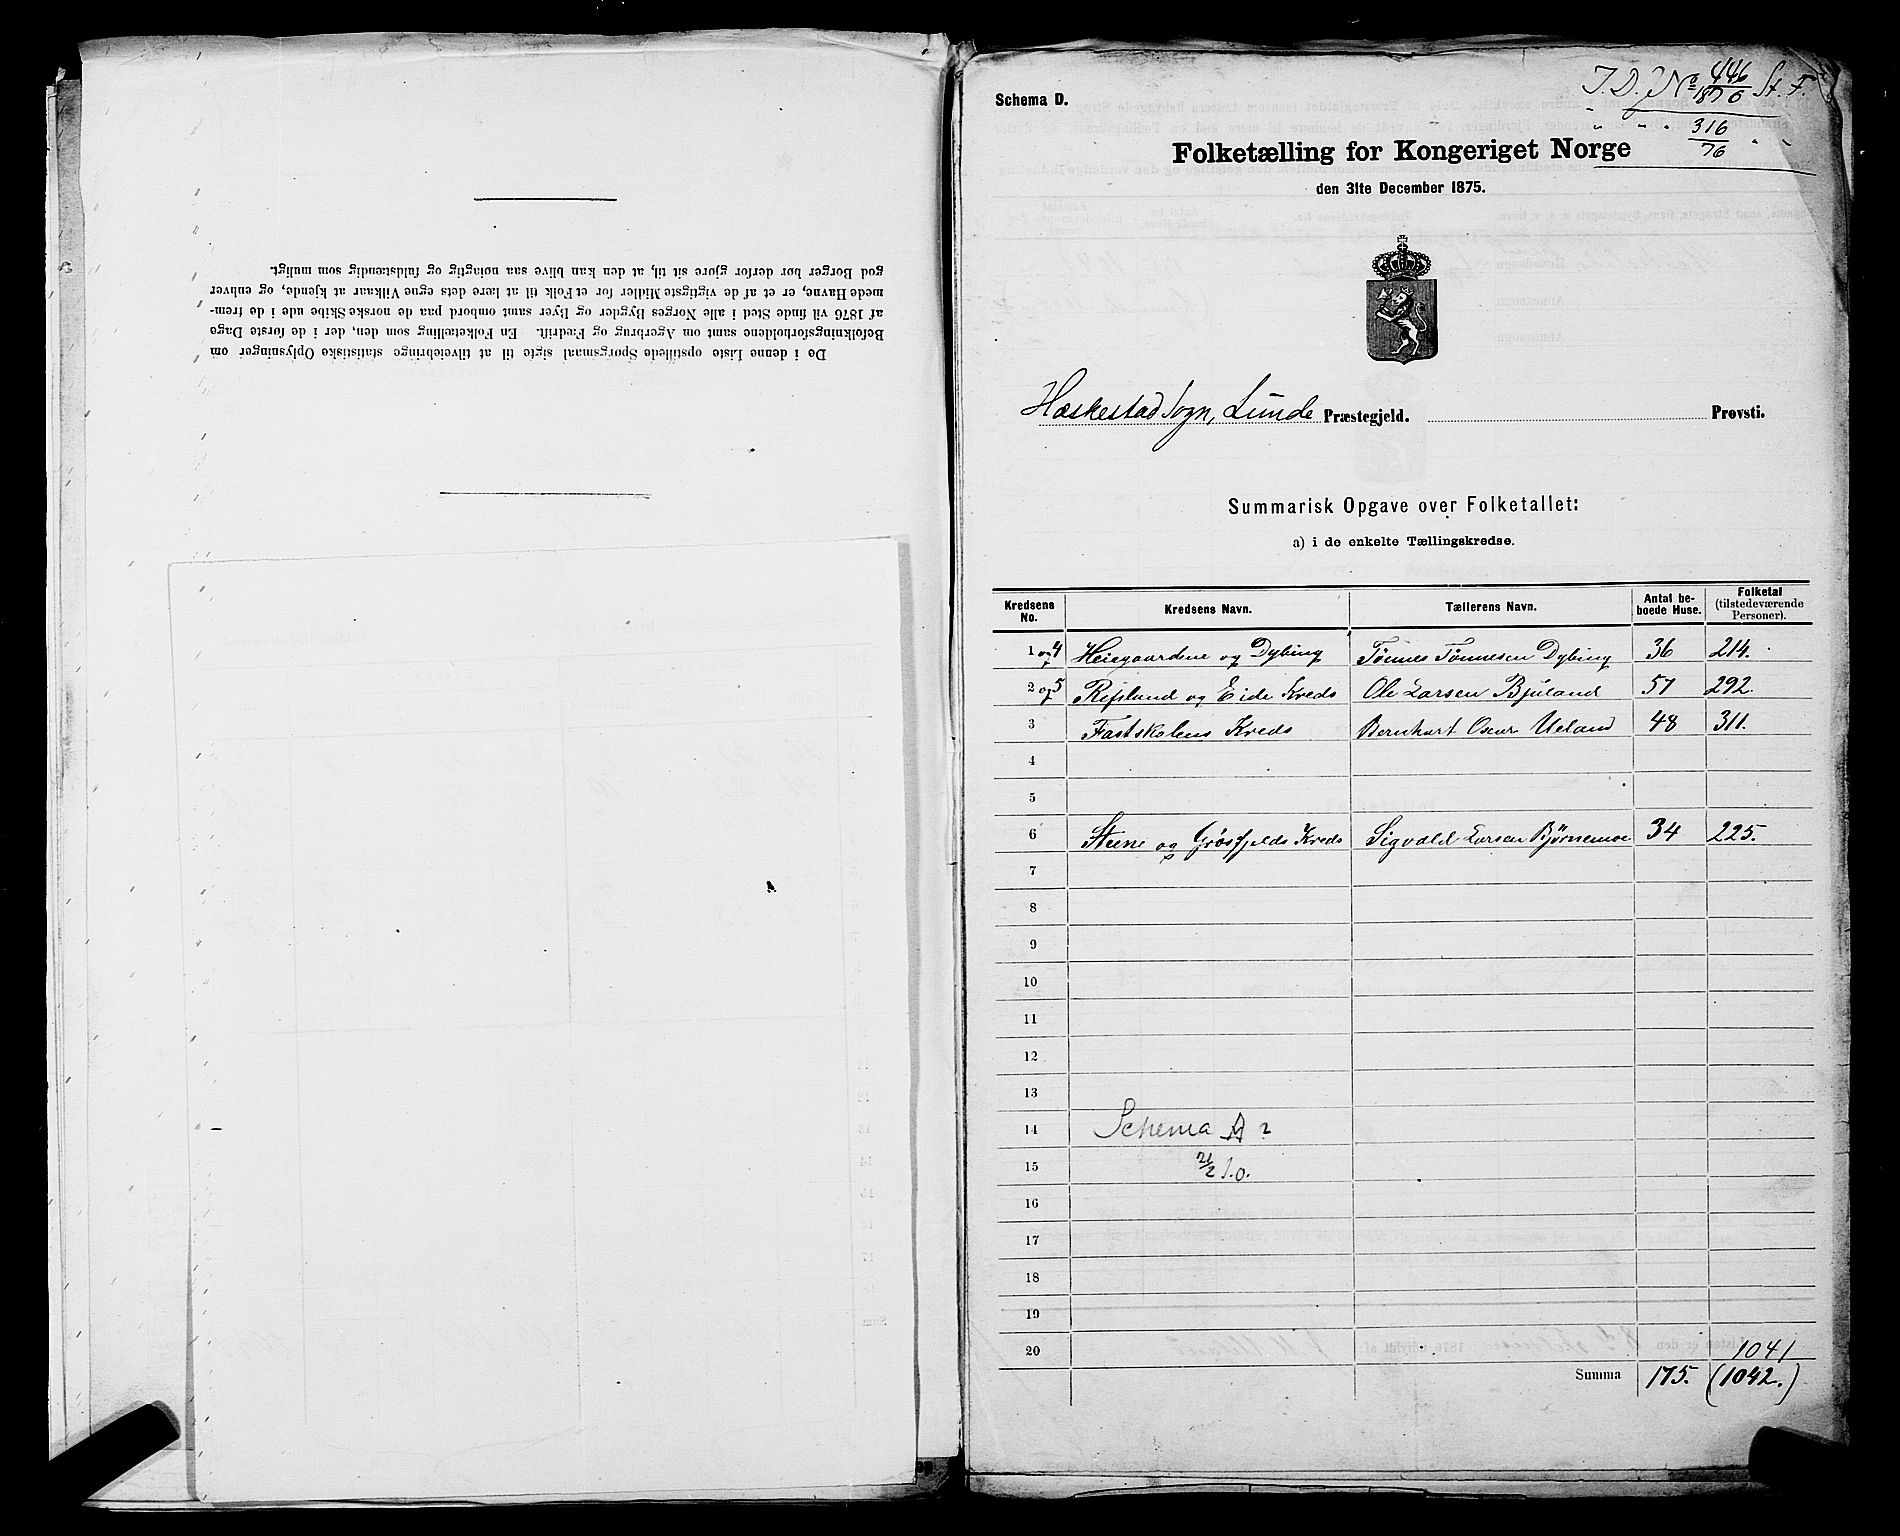 De i denne Liste opstillede Spørgsmaal sigte til at tilveiebringe statistiske Oplysninger om
Befolkningsforholdene samt om Agerbrug og Fædrift. En Folketælling som den, der i de første Dage
af 1876 vil finde Sted i alle Norges Bygder og Byer samt ombord paa de norske Skibe ude i de frem-
mede Havne, er et af de vigtigste Midler for et Folk til at lære dets egne Vilkaar at kjende, og enhver
god Borger bør derfor gjøre sit til, at den kan blive saa nøiagtig og fuldstændig som muligt.
Schema D.
J. D. J. No 446/1876 St. F.
" " " 316/76 " "
Folketælling for Kongeriget Norge
den 31te December 1875.
Heskestad Sogn, Lunde Præstegjeld. Provsti.
Summarisk Opgave over Folketallet:
a) i de enkelte Tællingskredse.
Kredsens No. Kredsens Navn. Tællerens Navn. Antal be-boede Huse. Folketal (tilstedeværende Personer).
1 og 4 Heiegaardene og Dybing Tønnes Tønnesen Dybing 36 214.
2 og 5 Refsland og Eide Kreds Ole Larsen Bjuland 57 292.
3 Fastskolens Kreds Bernhart Oscar Ueland 48 311.
4
5
6 Steene og Grøsfjelds Kreds Sigvald Larsen Bjørnemoe 34 225.
7
8
9
10
11
12
13
14 Schema A ?
15 21/2 S.O.
16
17
18
19
20 1041
Summa 175. (1042.)